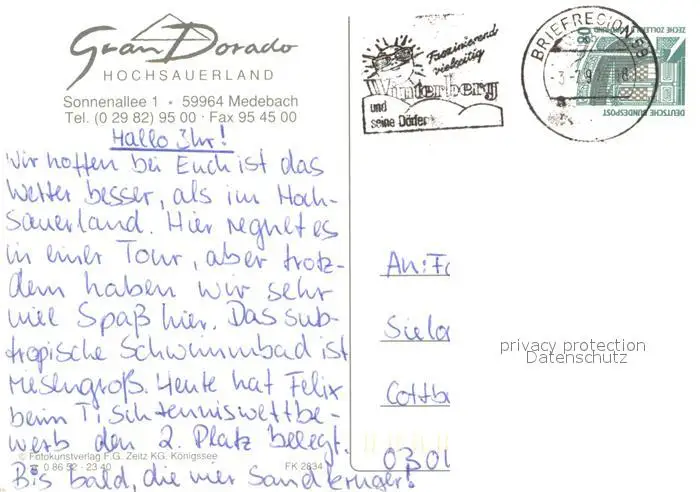 Gran Dorado
HOCHSAUERLAND
Sonnenallee 1 • 59964 Medebach
Tel. (0 29 82) 95 00 · Fax 95 45 00
Hallo Ihr!
Wir hoffen bei Euch ist das
Wetter besser, als im Hoch-
sauerland. Hier regnet es
in einer Tour, aber trotz-
dem haben wir sehr
viel Spaß hier. Das sub-
tropische Schwimmbad ist
riesengroß. Heute hat Felix
beim Tischtenniswettbe-
werb den 2. Platz belegt.
© Fotokunstverlag F.G. Zeitz KG. Königssee
0 86 52 - 23 40
FK 2834
Bis bald, die vier Sandkrüger!
Faszinierend
vielseitig
Winterberg
und
seine Dörfer
BRIEFREGION 59
ZECHE ZOLLERN
DEUTSCHE BUNDESPOST
An: Fa
Sielo
Cottb
030
privacy protection
Datenschutz